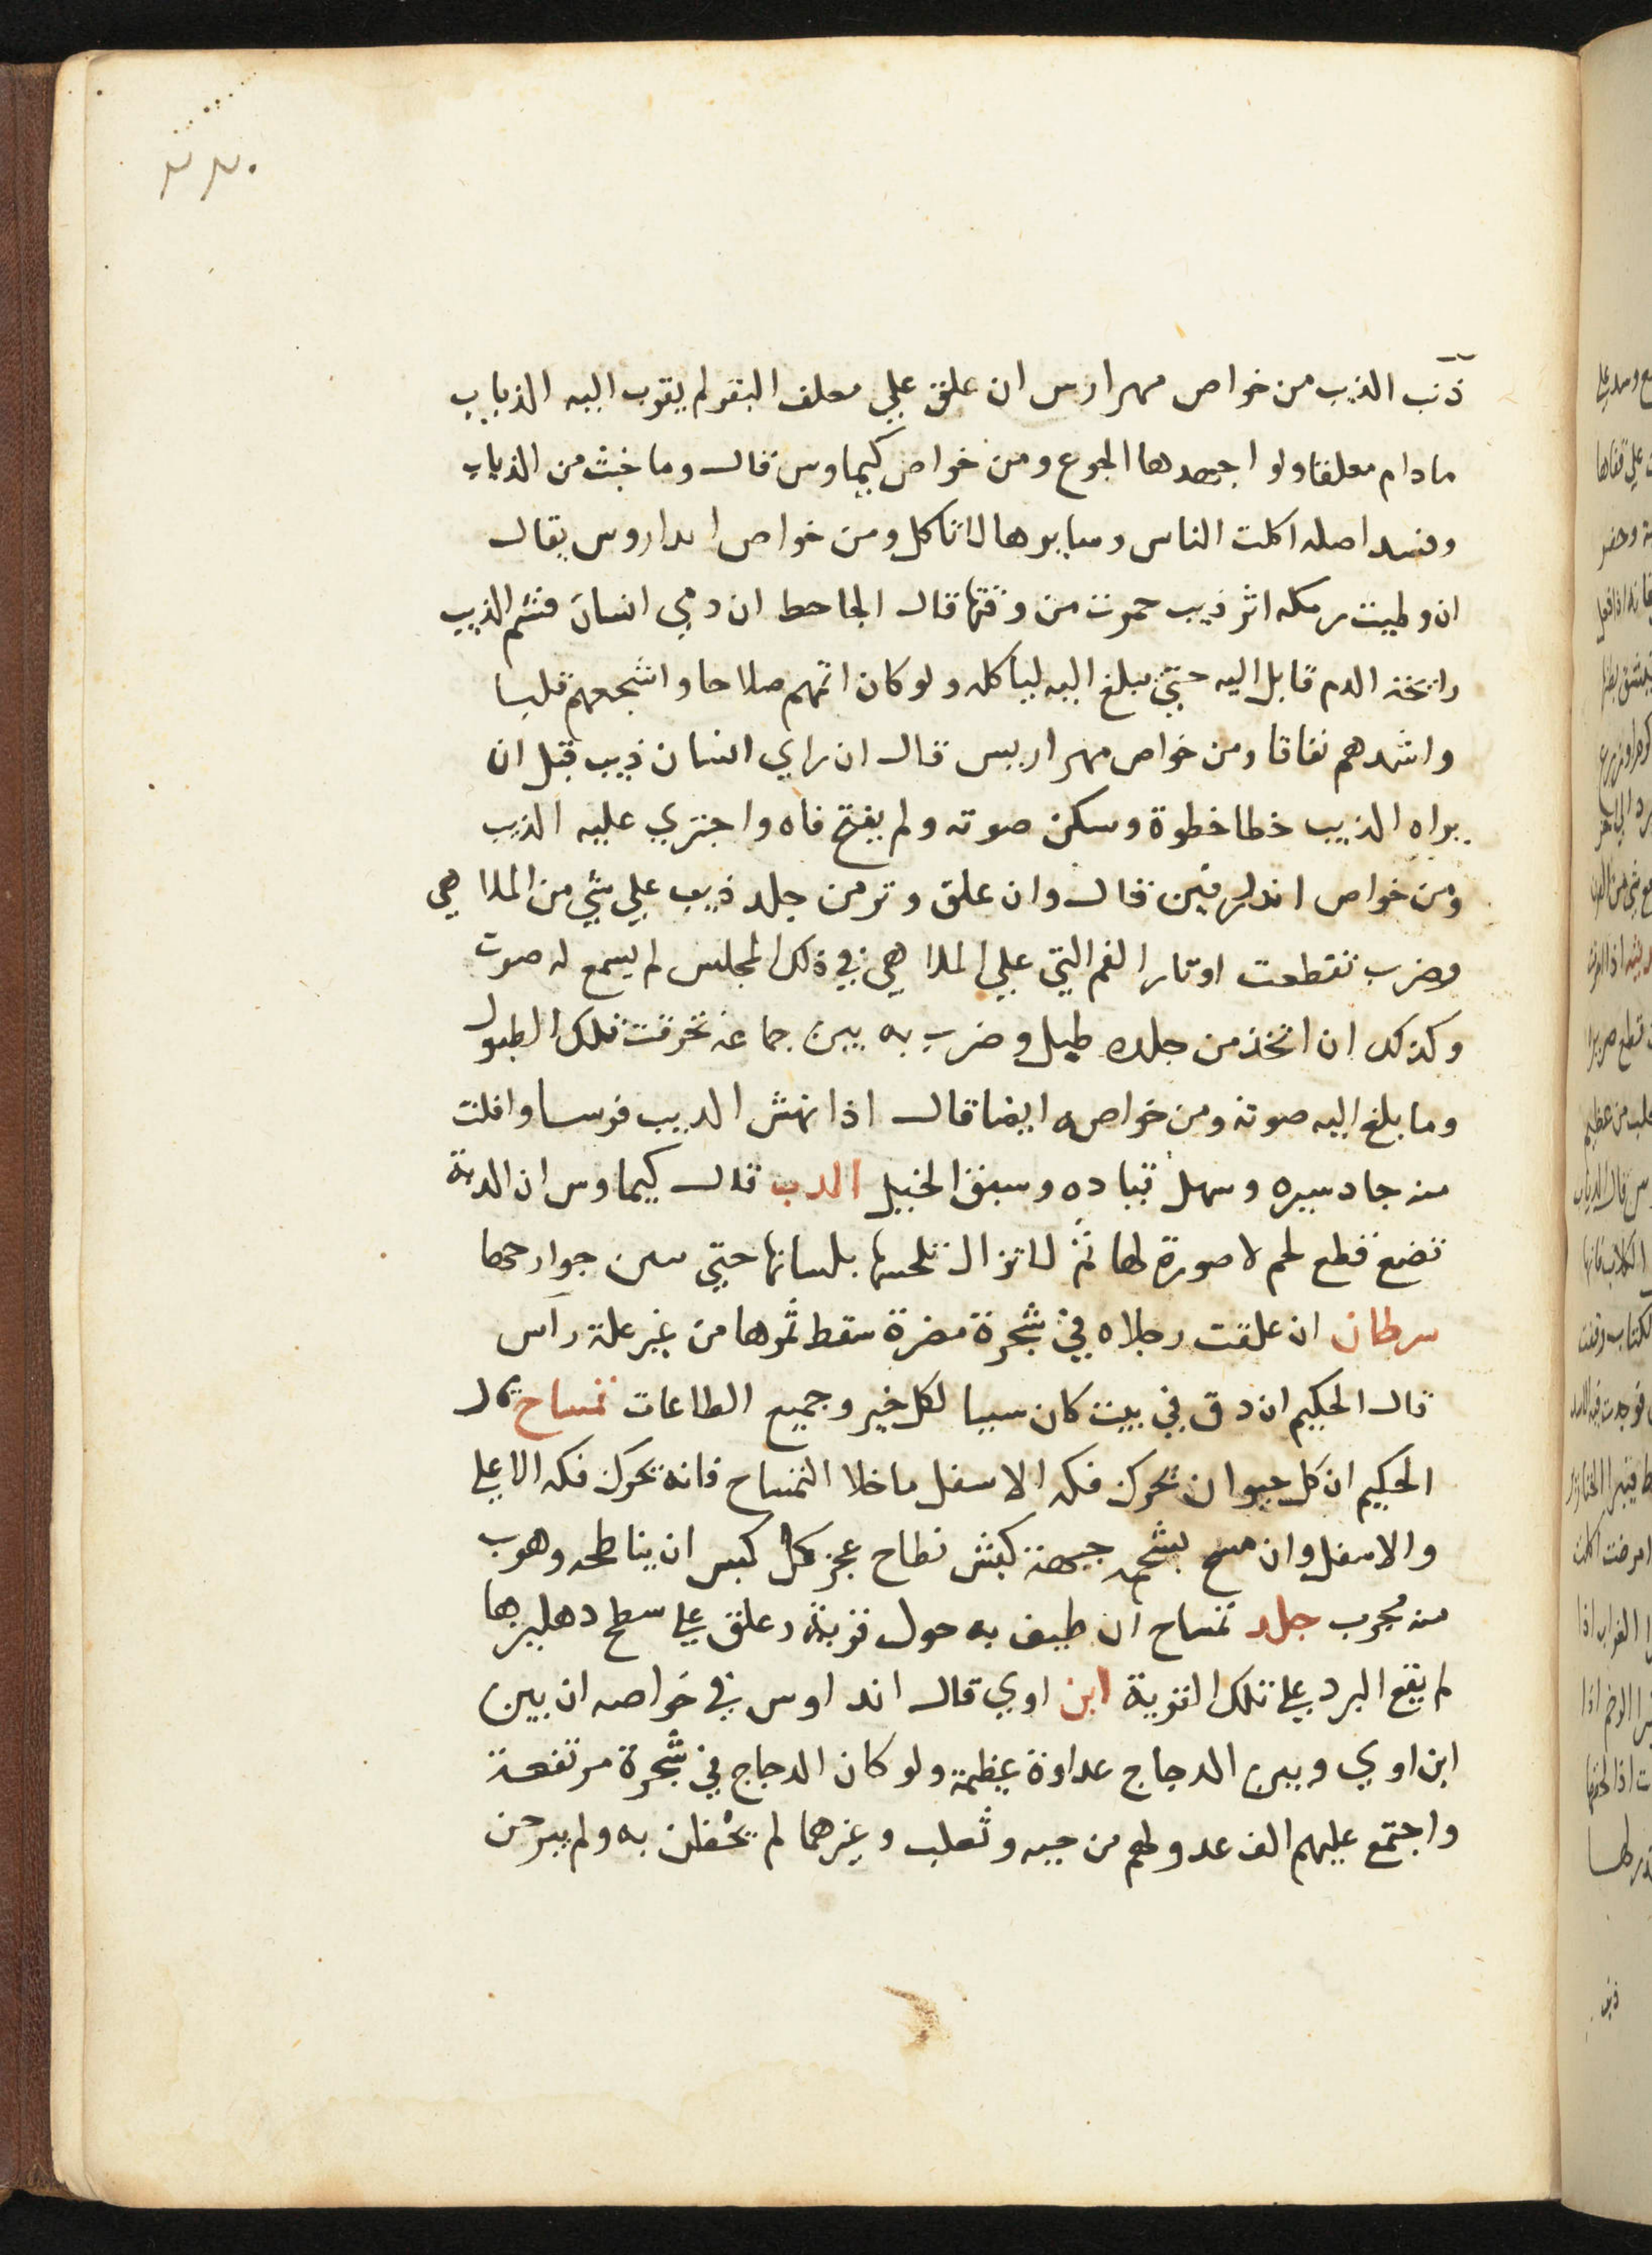 ذنب الذيب من خواص مهرارس ان علق علي معلف البقر لم يقرب اليه الذياب
مادام معلقا ولو اجهدها الجوع ومن خواص كيماوس قال وما خبث من الذياب
وفسد اصله اكلت الناس وسايرها لا تاكل ومن خواص اندراوس يقال
ان وطيت رمكه اثر ذيب حمرت من وقتها قال الجاحظ ان دمي انسان فشم الذيب
رايحة الدم قابل اليه حتي يبلغ اليه لياكله ولو كان اتمهم صلاحا واشجعهم قلبا
واشدهم نفاقا ومن خواص مهراريس قال ان راي انسان ذيب قبل ان
يراه الذيب خطا خطوة وسكن صوته ولم يفتح فاه واجتري عليه الذيب
ومن خواص قال وان علق وتر من جلد ذيب علي شي من الملاهي
وضرب تقطعت اوتار الغم التي علي الملاهي في ذلك المجلس لم يسمع له صوت
وكذلك ان اتخذ من جلده طبل وضرب به بين جماعة تخرقت تلك الطبول
وما بلغ اليه صوته ومن خواصه ايضا قال اذا نهش الديب فرسا وافلت
منه جاد سيره وسهل قياده وسبق الخيل الدب قال كيماوس ان الدبة
تضع قطع لحم لا صورة لها ثم لا تزال تلحسها بلسانها حتي جوارحها
سرطان ان علقت رجلاه في شجرة مضرة سقط ثمرها من غير علة راس
قال الحكيم ان دق في بيت كان سببا لكل خير وجميع الطاعات تمساح قال
الحكيم ان كل حيوان يحرك فكه الاسفل ما خلا التمساح فانه يحرك فكه الاعلي
والاسفل وان مسح بشحمه جبهة كبش نطاح عجز كل كبش ان يناطحه وهرب
منه مجرب جلد تمساح ان طيف به حول قرية وعلق علي سطح دهليزها
لم يقع البرد علي تلك القرية ابن اوي قال اندراوس في خواصه ان بين
ابن اوي وبين الدجاج عداوة عظيمة ولو كان الدجاج في شجرة مرتفعة
واجتمع عليهم الف عدو لهم من حيه وثعلب وغيرهما لم يحفلن به ولم يبرحن